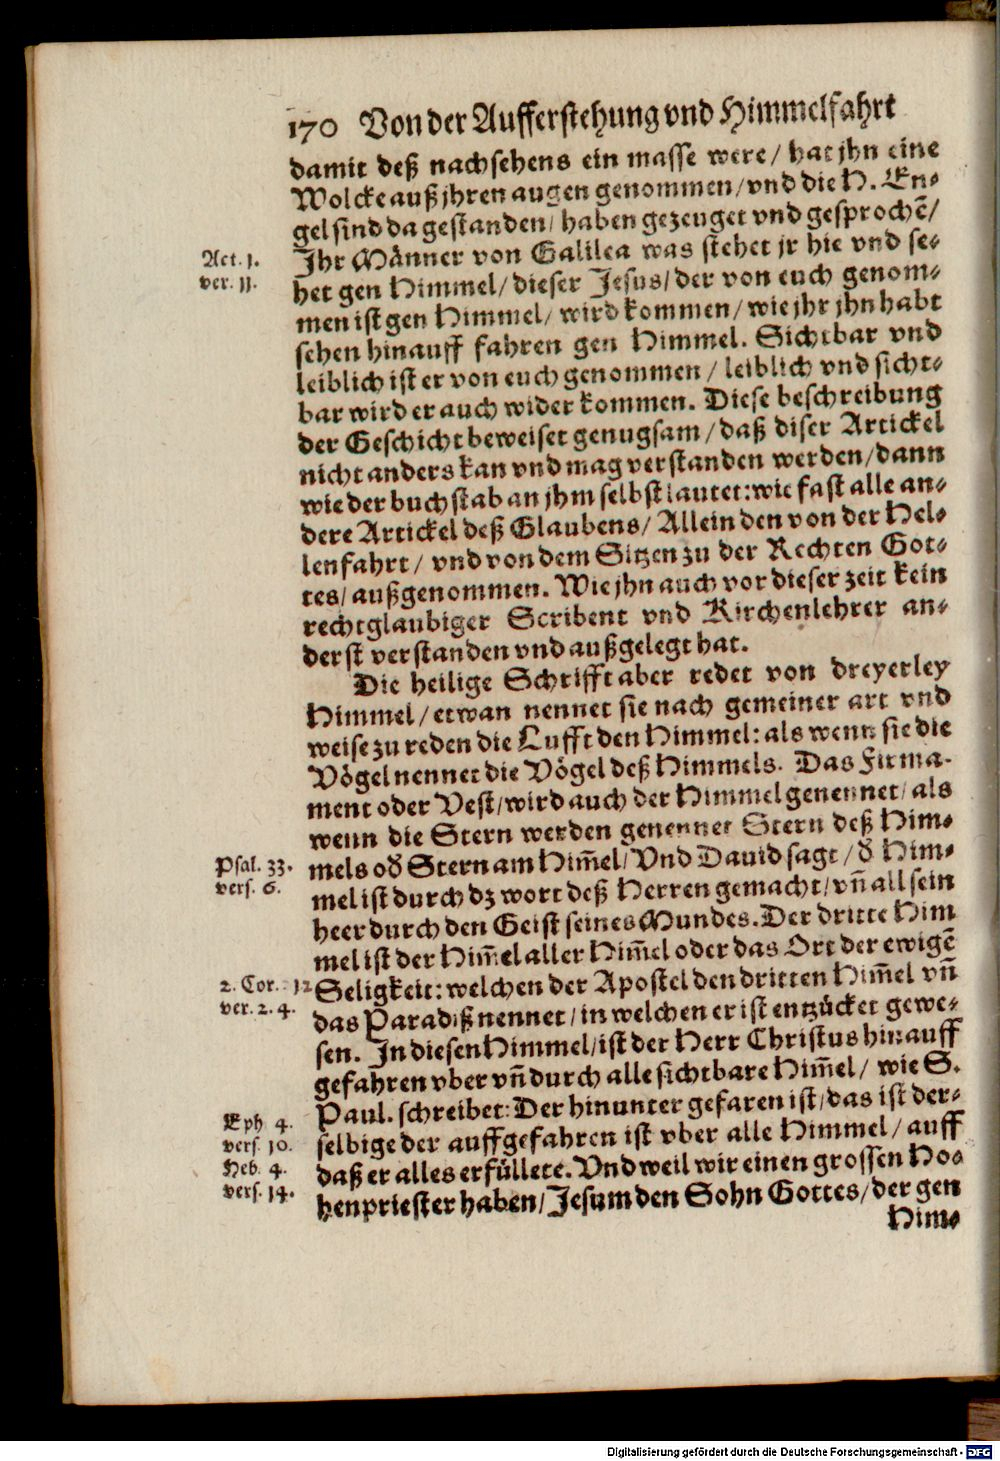 170 Von der Aufferstehung vnd Himmelfahrt
damit deß nachsehens ein masse were / hat jhn eine
Wolcke auß jhren augen genommen / vnd die H. En-
gel sind da gestanden / haben gezeuget vnd gesprochẽ /
Act. 1.
Ihr Männer von Galilea was stehet jr hie vnd se-
ver. 11.
het gen Himmel / dieser Jesus / der von euch genom-
men ist gen Himmel / wird kommen / wie jhr jhn habt
sehen hinauff fahren gen Himmel. Sichtbar vnd
leiblich ist er von euch genommen / leiblich vnd sicht-
bar wird er auch wider kommen. Diese beschreibung
der Geschicht beweiset genugsam / daß diser Artickel
nicht anders kan vnd mag verstanden werden / dann
wie der buchstab an jhm selbst lautet: wie fast alle an-
dere Artickel deß Glaubens / Allein den von der Hel-
lenfahrt / vnd von dem Sitzen zu der Rechten Got-
tes / außgenommen. Wie jhn auch vor dieser zeit kein
rechtglaubiger Scribent vnd Kirchenlehrer an-
derst verstanden vnd außgelegt hat.
Die heilige Schrifft aber redet von dreyerley
Himmel / etwan nennet sie nach gemeiner art vnd
weise zu reden die Lufft den Himmel: als wenn sie die
Vögel nennet die Vögel deß Himmels. Das Firma-
ment oder Vest / wird auch der Himmel genennet / als
wenn die Stern werden genennet Stern deß Him-
Psal. 33.
mels oď Stern am Him̃el / Vnd Dauid sagt / ď Him-
vers. 6.
mel ist durch dz wort deß Herren gemacht / vñ all sein
heer durch den Geist seines Mundes. Der dritte Him
mel ist der Him̃el aller Him̃el oder das Ort der ewigẽ
2. Cor. 12
Seligkeit: welchen der Apostel den dritten Him̃el vñ
ver. 2. 4.
das Paradiß nennet / in welchen er ist entzücket gewe-
sen. In diesen Himmel / ist der Herr Christus hinauff
gefahren vber vñ durch alle sichtbare Him̃el / wie S.
Paul. schreibet: Der hinunter gefaren ist / das ist der-
Eph 4.
vers. 10.
selbige der auffgefahren ist vber alle Himmel / auff
Heb. 4.
daß er alles erfüllete. Vnd weil wir einen grossen Ho-
vers. 14.
henpriester haben / Jesum den Sohn Gottes / der gen
Him-
Digitalisierung gefördert durch die Deutsche Forschungsgemeinschaft - DFG